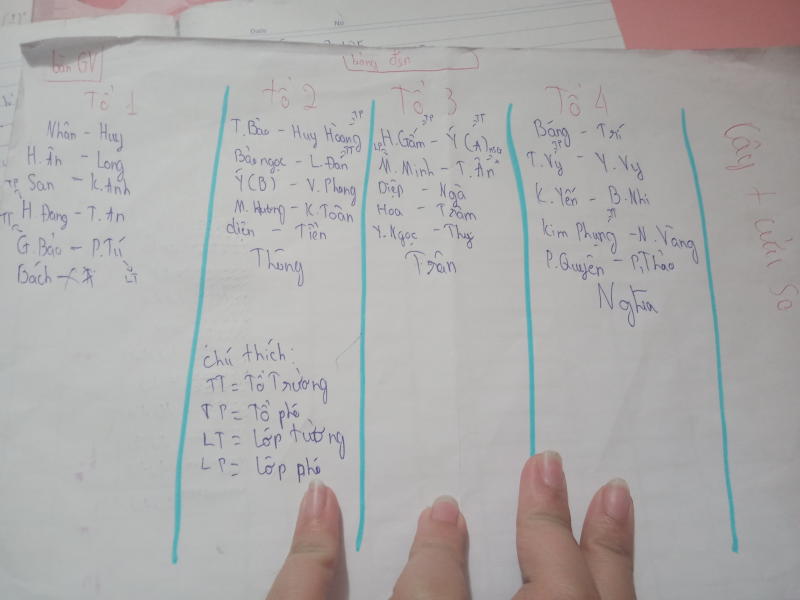 bàn GV
bảng đen
Tổ 1
Nhân - Huy
H. Ân - Long
TP San - K. Anh
TT H Đang - T. An
G. Bảo - P. Tú
Bách LT
Tổ 2
T. Bảo - Huy Hoàng TP
Bảo ngọc - L. Đan TT
Ý (B) - V. Phong
M. Hương - K. Toàn
diện - Tiền
Thông
chú thích:
TT = Tổ Trường
TP = Tổ phó
LT = Lớp tường
LP = Lớp phó
Tổ 3
H. Gấm - Ý (A) TP TT
LP M. Minh - T. Ân
Diệp - Ngà
Hoa - Trâm
Y. Ngọc - Thuy
Trân
Tổ 4
Báng - Trí
T. Vy - Y. Vy TP
K. Yến - B. Nhi
Kim Phụng - N. Vàng TT
P. Quyên - P. Thảo
Nghĩa
Cây + cửa sổ